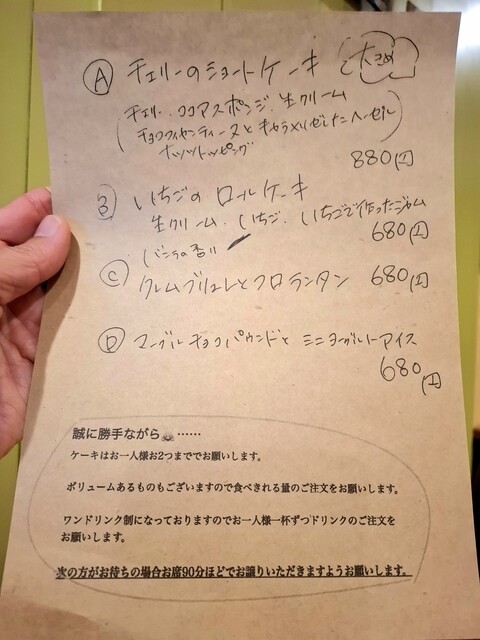 Ⓐ チェリーのショートケーキ 大きめ
(チェリー、ココアスポンジ、生クリーム
チョコフィヤンティーヌとキャラメリゼしたヘーゼル
ナッツトッピング)
880円
Ⓑ いちごのロールケーキ
生クリーム、いちご、いちごで作ったジャム
680円
バニラの香り
Ⓒ クレームブリュレとフロランタン 680円
Ⓓ マーブルチョコパウンドとミニヨーグルトアイス
680円
誠に勝手ながら……
ケーキはお一人様お2つまででお願いします。
ボリュームあるものもございますので食べきれる量のご注文をお願いします。
ワンドリンク制になっておりますのでお一人様一杯ずつドリンクのご注文を
お願いします。
次の方がお待ちの場合お席90分ほどでお譲りいただきますようお願いします。